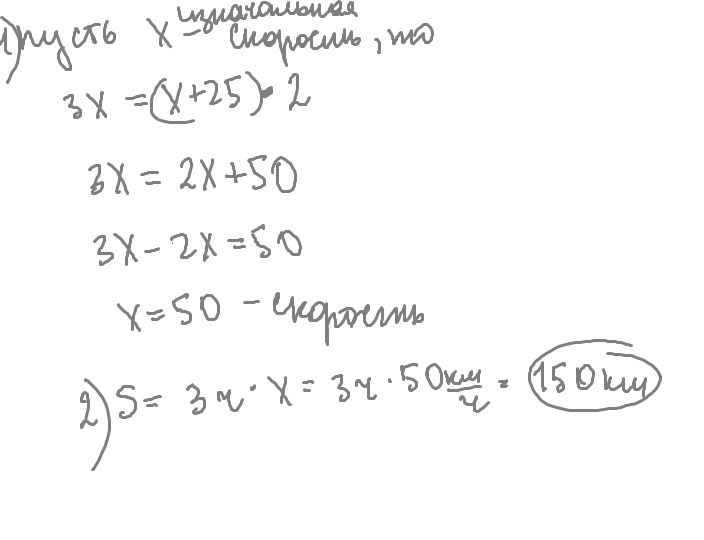 1) пусть x - изначальная скорость, то
3x = (x+25) · 2
3x = 2x+50
3x - 2x = 50
x = 50 - скорость
2) S = 3ч · x = 3ч · 50 км/ч = 150 км